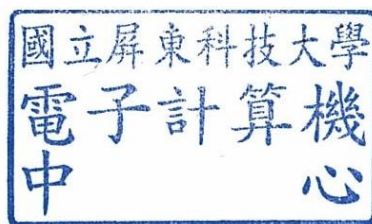 國立屏東科技大學
電子計算機
中心